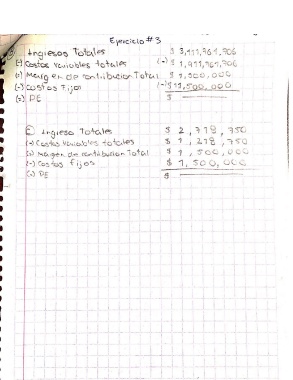 Ejercicio #3
Ingresos Totales $ 3,411,761,706
(-) Costos variables totales (-) $ 1,911,761,706
(=) Margen de contribución Total $ 1,500,000
(-) Costos Fijos (-) $ 1,500,000
(=) PE $
② Ingreso Totales $ 2,718,750
(-) Costos variables totales $ 1,218,750
(=) Margen de contribucion Total $ 1,500,000
(-) Costos fijos $ 1,500,000
(=) PE $